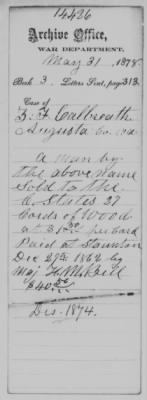 14426
Archive Office,
WAR DEPARTMENT.
May 31, 1878
Book 3. Letters Sent, page 313
Case of
Z. F. Calbreath
Augusta Co. Va
A man by
the above name
Sold to the
C. States 27
Cords of Wood
at $1.50 per Cord
Paid at Staunton
Dec 29th 1862 by
Maj. H. M. Bell
$40.50
Dis. 1874.